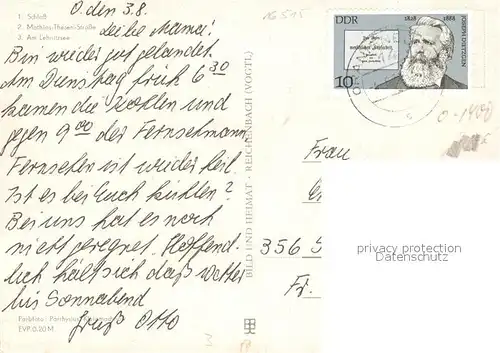 O. den 3.8.
1. Schloß
2. Mathias-Thesen-Straße
3. Am Lehnitzsee
Liebe Mama!
Bin wieder gut gelandet.
Am Dienstag früh 6 30
kamen die Kohlen und
gegen 9 00 der Fernsehmann
Fernsehen ist wieder heil.
Ist es bei Euch kühler?
Bei uns hat es noch
nicht geregnet. Hoffent-
lich hält sich das Wetter
bis Sonnabend
Gruß Otto
EVP: 0,20 M
BILD UND HEIMAT · REICHENBACH (VOGTL)
DDR 1828 1888
JOSEPH DIETZGEN
10
Frau
356 S
Fr.
privacy protection
Datenschutz
3